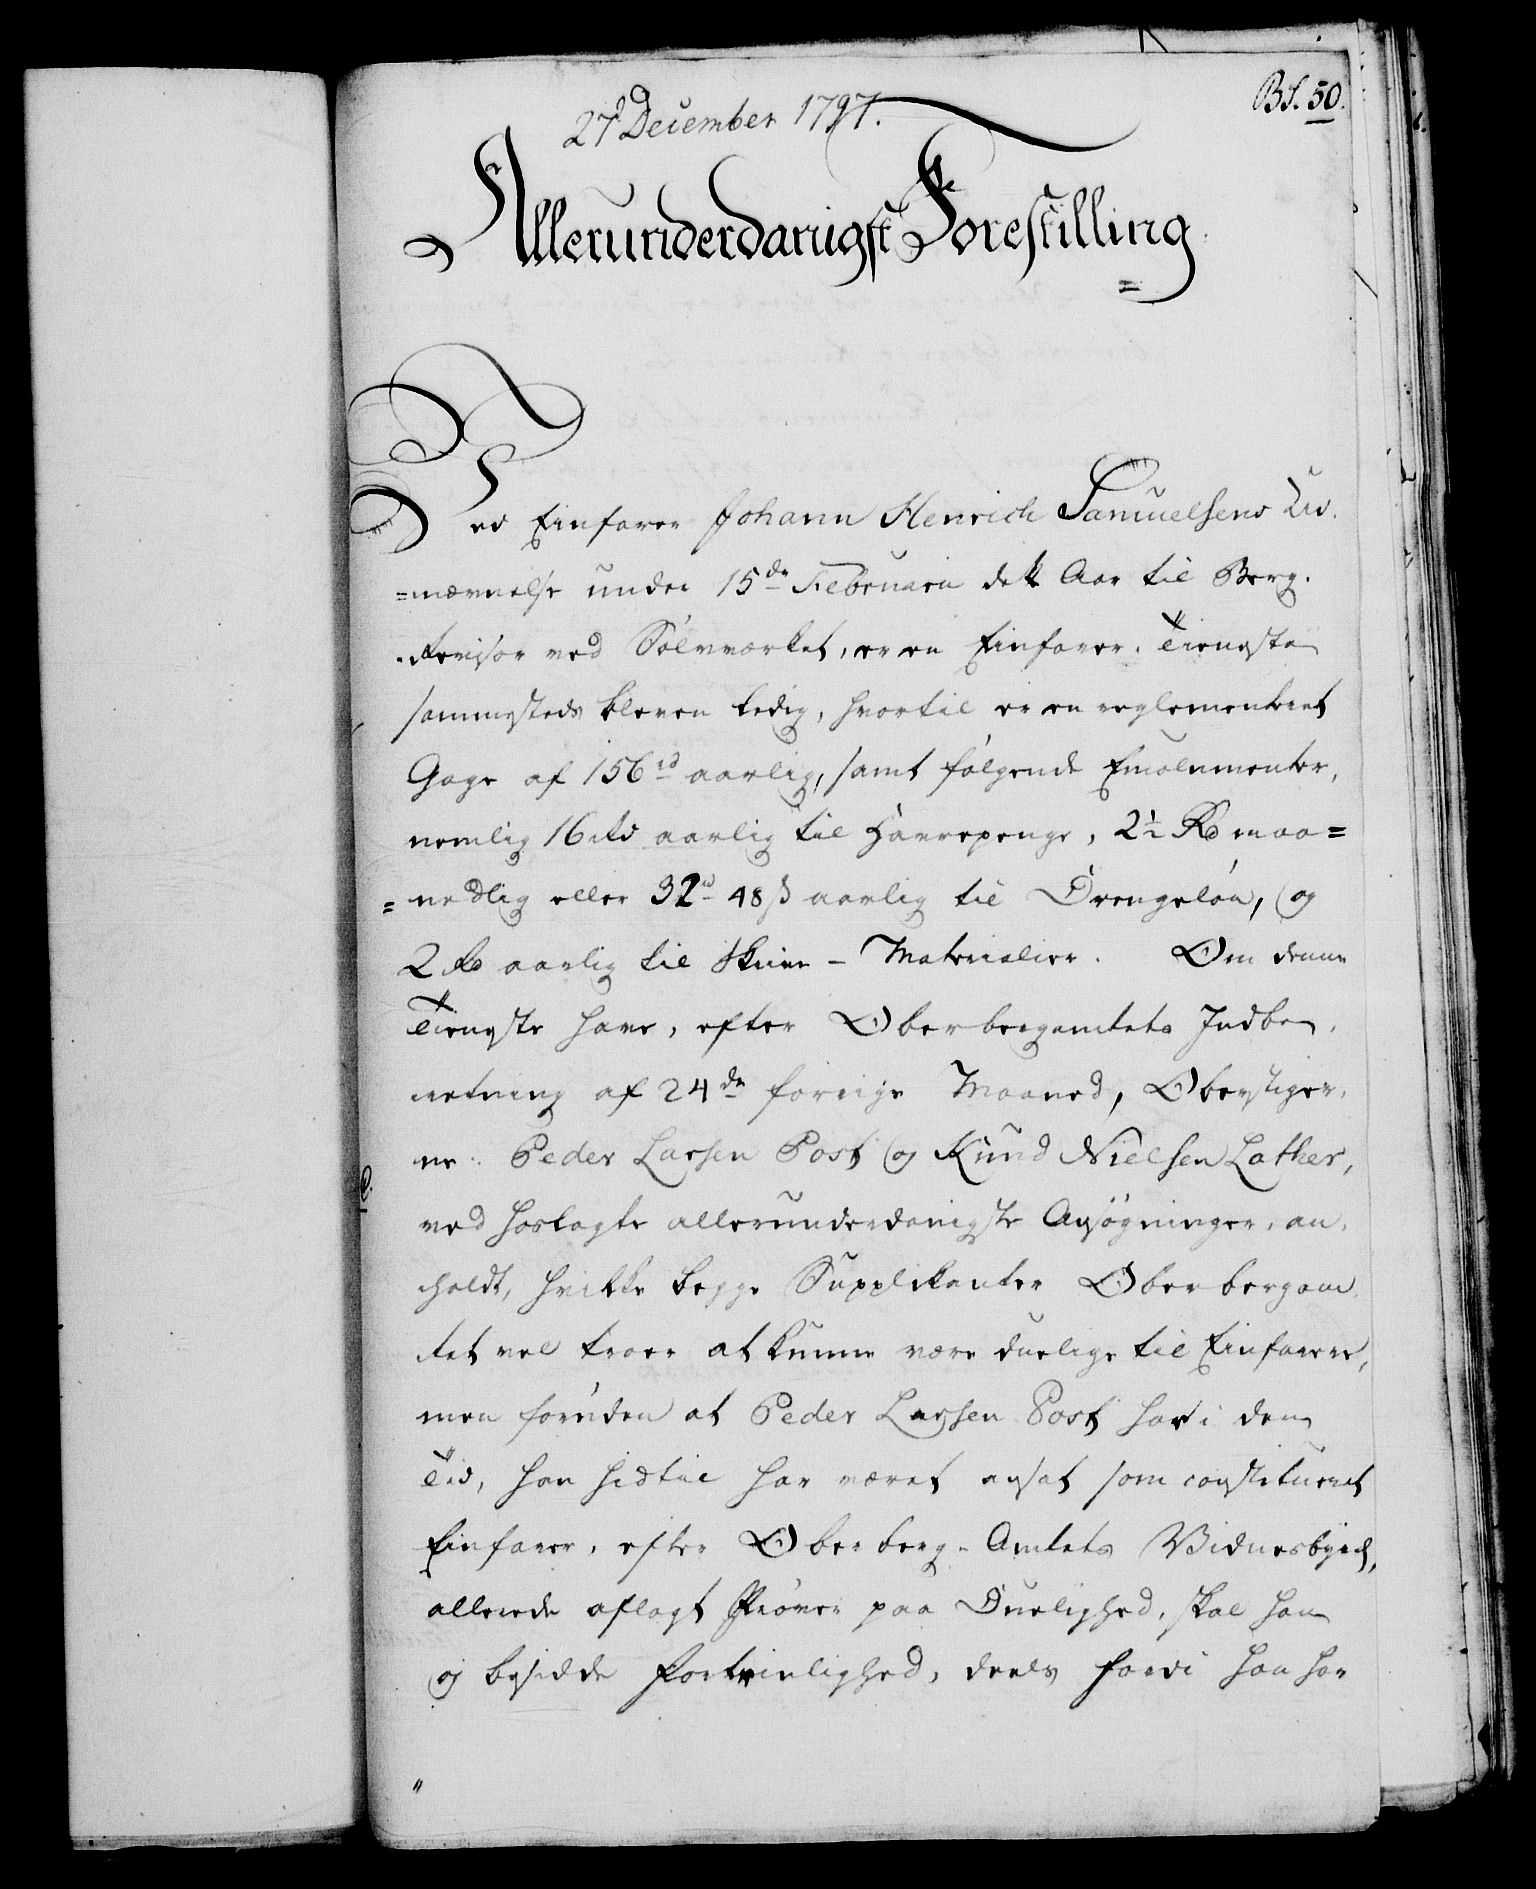 Bs. 50.
27d December 1797.
Allerunderdanigst Forestilling
Ved Einfarer Johann Henrich Samuelsens Ud-
=nævnelse under 15de Februarii dette Aar til Berg-
-revisor ved Sølvværket, er en Einfarer-Tieneste
sammesteds bleven ledig, hvortil er en reglementeret
Gage af 156 rd aarlig, samt følgende Emolumenter,
nemlig 16 rd aarlig til Havrepenge, 2½ Rd maa=
=nedlig eller 32 rd 48 ß aarlig til Drengeløn, og
2 Rd aarlig til Skrive-Materialier. Om denne
Tieneste have, efter Oberbergamtets Indbe-
retning af 24de forrige Maaned, Oberstiger-
ne Peder Larsen Post og Knud Nielsen Lather,
ved hoslagte allerunderdanigste Ansøgninger, an-
holdt, hvilke begge Supplikanter Oberbergam-
tet vel troer at kunne være duelige til Einfarere,
men foruden at Peder Larsen Post har i den
Tid, han hidtil har været ansat som constitueret
Einfarer, efter Oberberg-Amtets Vidnesbyrd,
allerede aflagt Prøver paa Duelighed, skal han
og besidde Fortrinlighed, deels fordi han har